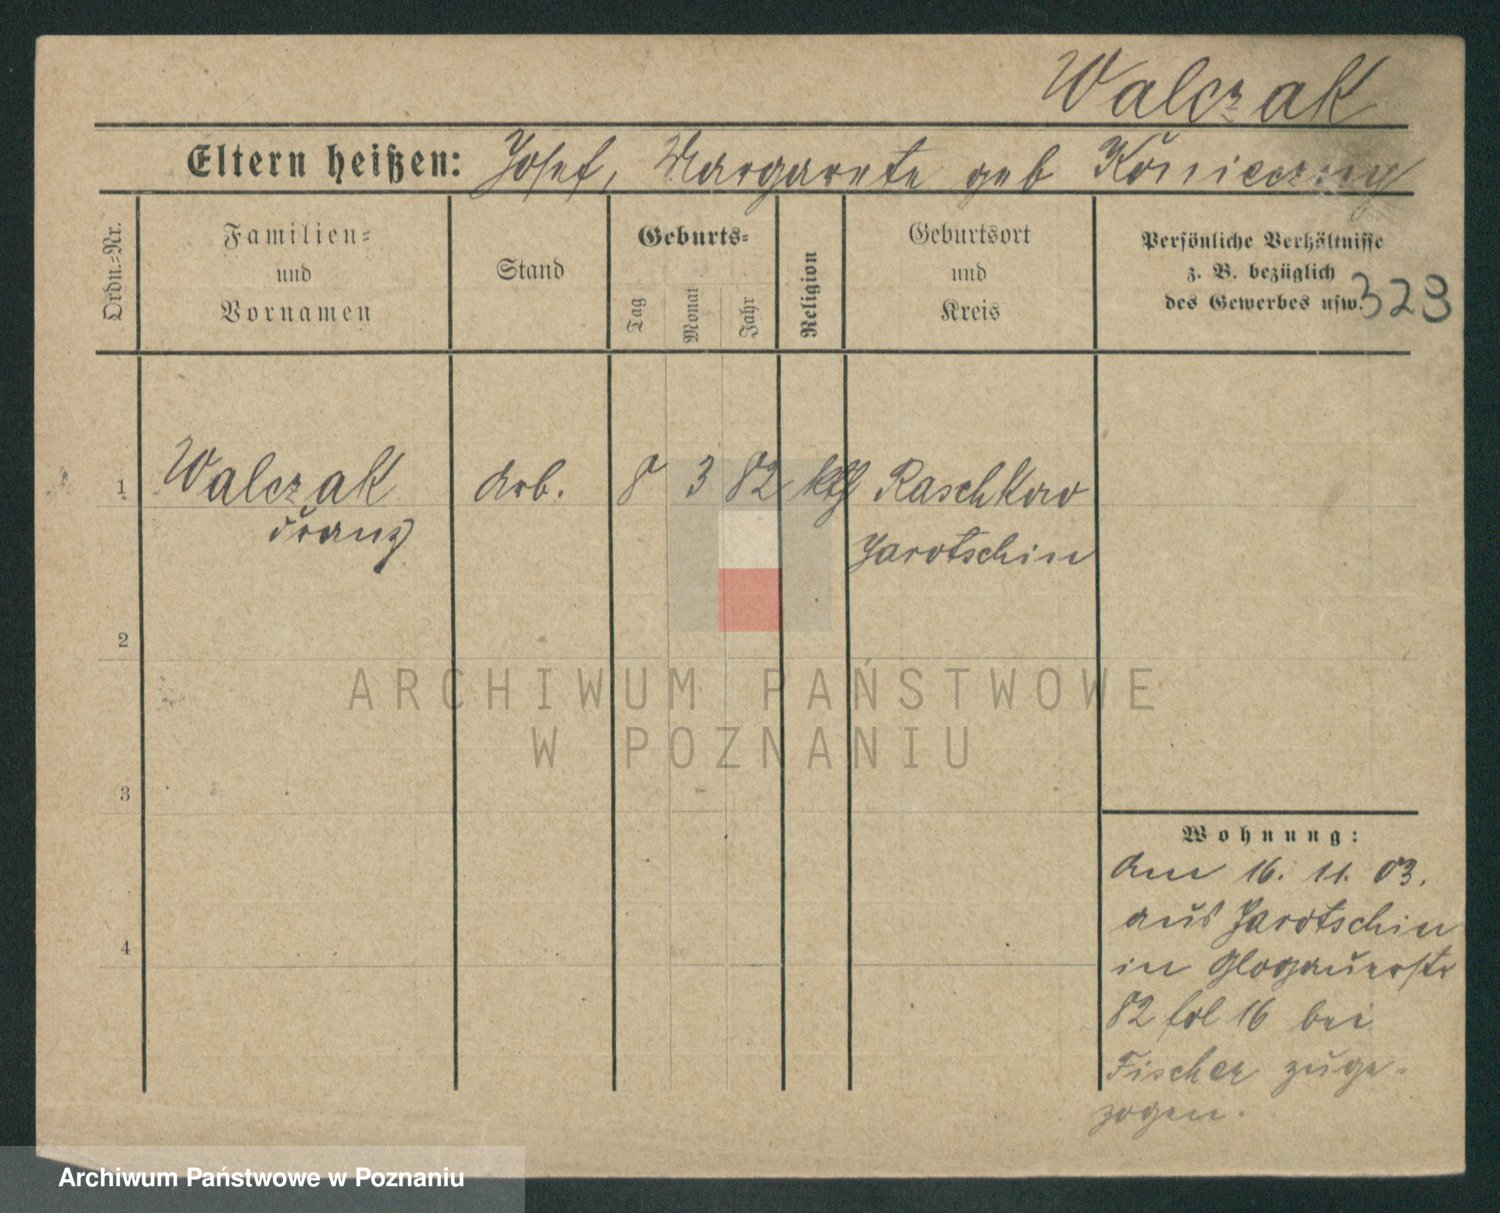 Walczak
Eltern heißen: Josef, Margarete geb Konieczny
Ordn.-Nr.
Familien-
und
Vornamen
Stand
Geburts-
Tag
Monat
Jahr
Religion
Geburtsort
und
Kreis
Persönliche Verhältnisse
z. B. bezüglich
des Gewerbes usw.
323
1 Walczak Arb. 8 3 82 kth Raschkow
Franz Jarotschin
2
ARCHIWUM PAŃSTWOWE
W POZNANIU
3
Wohnung:
Am 16. 11. 03.
aus Jarotschin
4
in Glogauerstr
82 fol 16 bei
Fischer zuge-
zogen.
Archiwum Państwowe w Poznaniu